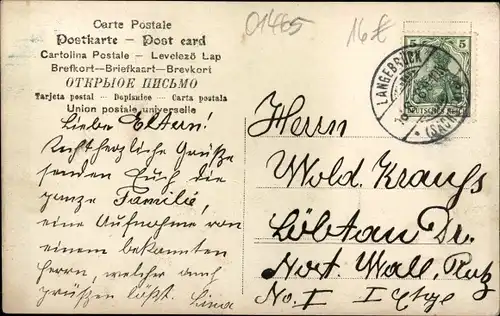 Carte Postale
Postkarte — Post card
Cartolina Postale — Levelező Lap
Brefkort—Briefkaart—Brevkort
ОТКРЫТОЕ ПИСЬМО
Tarjeta postal — Dopisnice — Carta postala
Union postale universelle
01465
16€
5 5
DEUTSCHES REICH
LANGEBRÜCK
Liebe Eltern!
Recht herzliche Grüße
senden Euch die
ganze Familie,
eine Aufnahme von
einem bekannten
Herrn, welcher auch
grüßen läßt. Lina
Herrn
Wold. Krauß
Löbtau Dr.
No. I I Etge